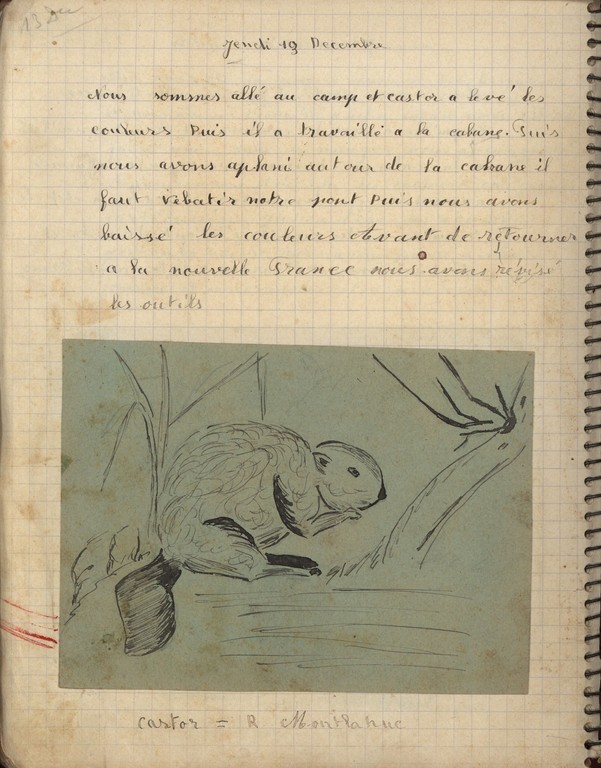 13 Dec
Jeudi 19 Decembre
Nous sommes allé au camp et castor a levé les
couleurs Puis il a travaillé a la cabane. Puis
nous avons aplani autour de la cabane il
faut rebatir notre pont Puis nous avons
baissé les couleurs Avant de retourner
a la nouvelle France nous avons révisé
les outils
castor = R